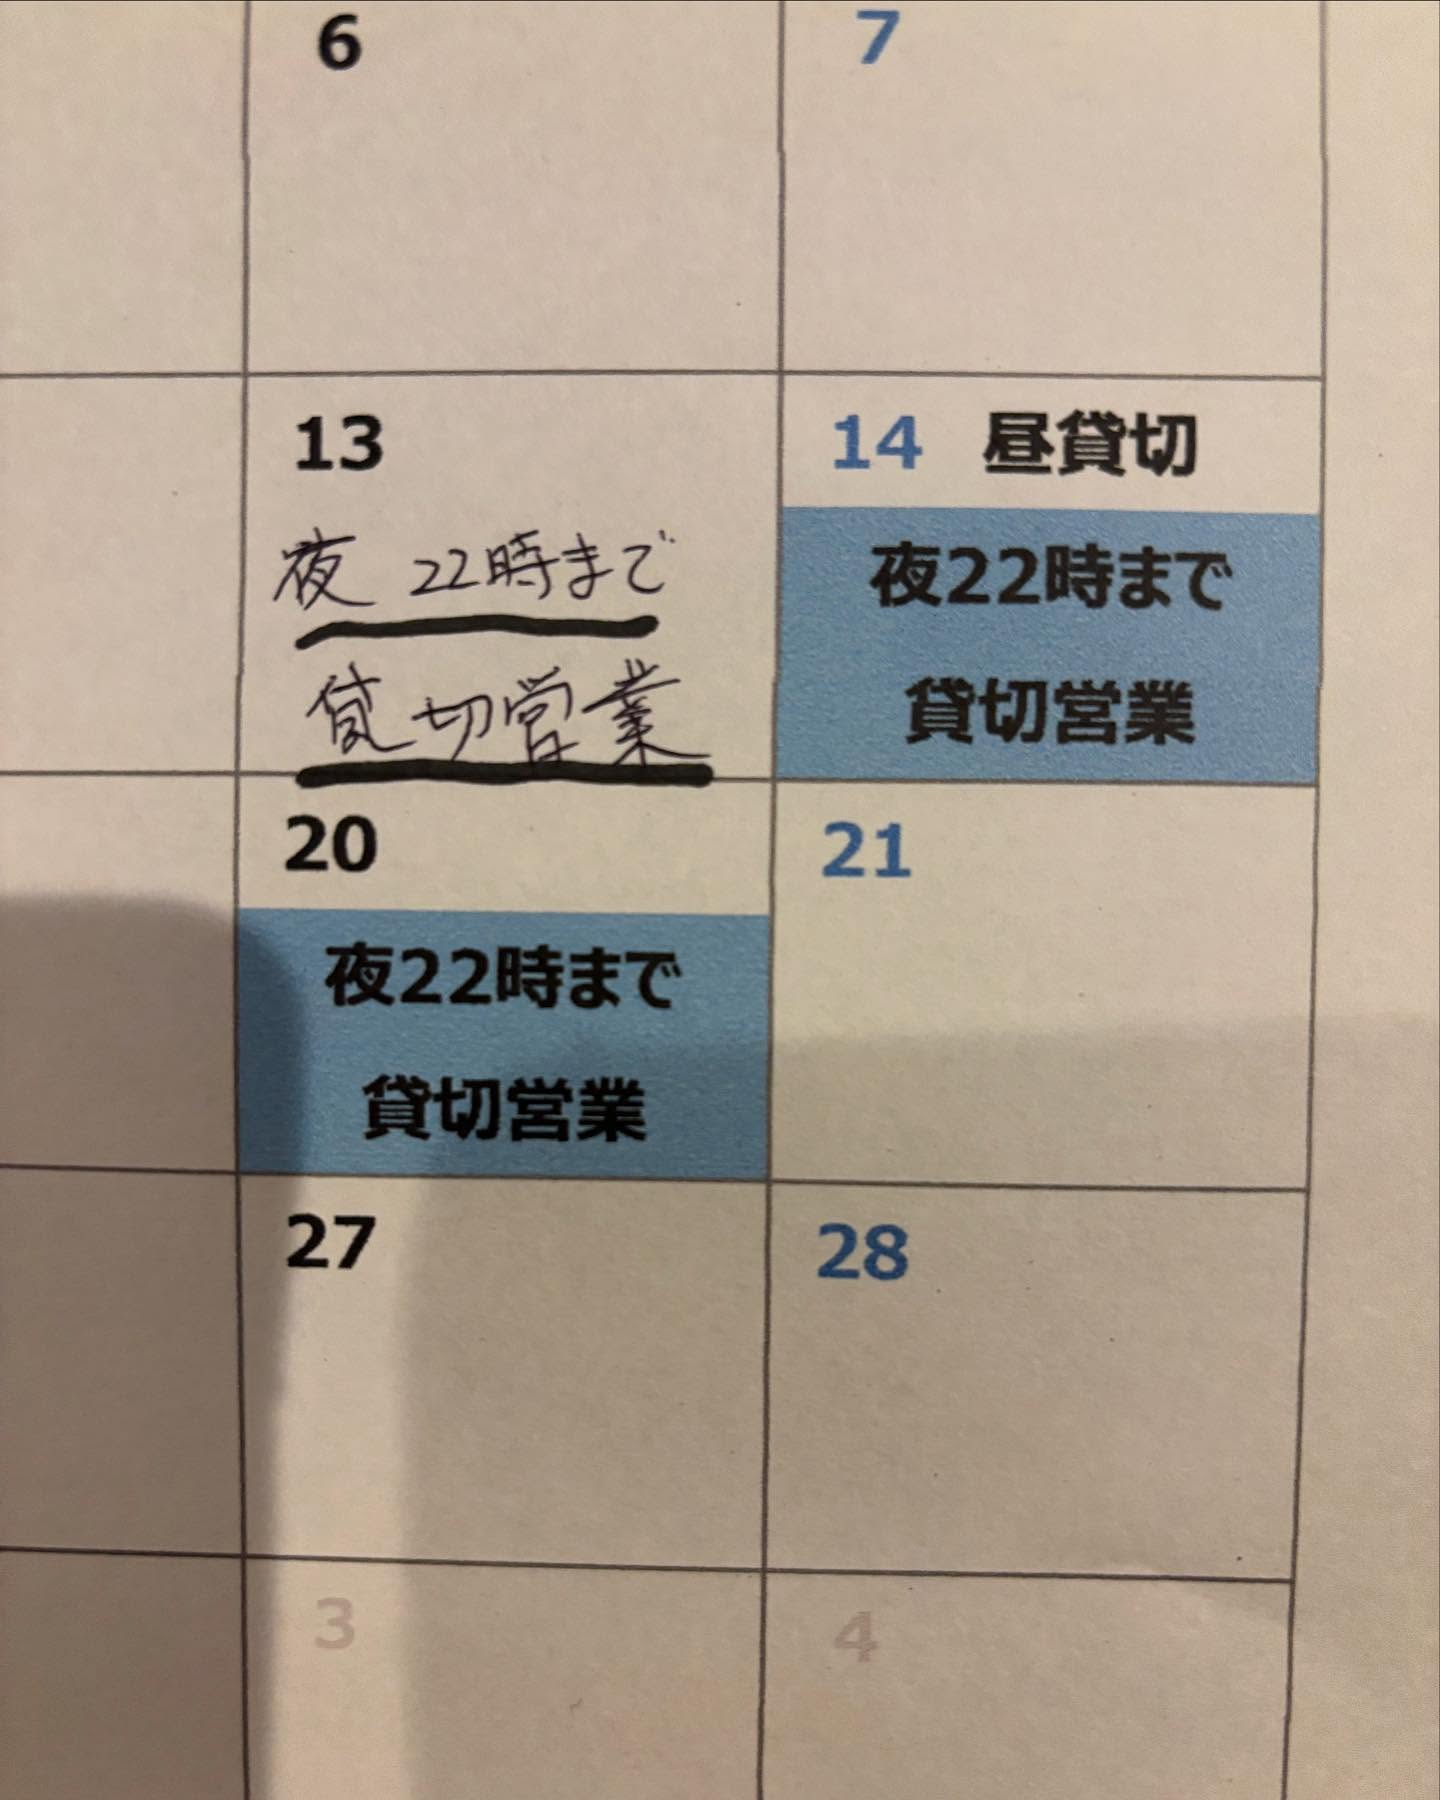 6
7
13
夜 22時まで
貸切営業
14 昼貸切
夜22時まで
貸切営業
20
夜22時まで
貸切営業
21
27
28
3
4